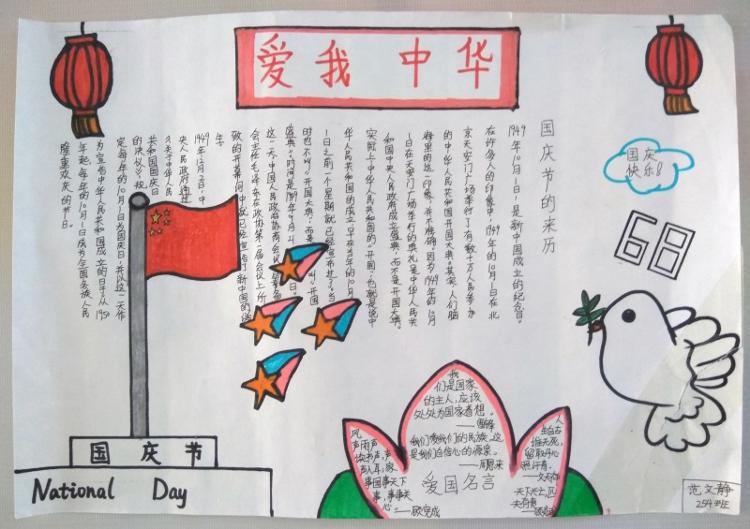 爱我中华
国庆节的来历
1949年10月1日,是新中国成立的纪念日。
在许多人的印象中,1949年的10月1日在北
京天安门广场举行了有数十万人民参加
的中华人民共和国开国大典。其实,人们脑
海里的这一印象,并不准确。因为1949年的10月
1日在天安门广场举行的典礼是中华人民共
和国中央人民政府成立盛典,而不是开国大典。
实际上中华人民共和国的"开国",也就是说中
华人民共和国的成立,早在当年的10月
1日之前一个星期就已经宣布过了。当
时也不叫"开国大典",而是叫"开国
盛典"。时间是1949年9月21日。
这一天,中国人民政治协商会议筹备
会主任毛泽东在政协第一届会议上所
致的开幕词中就已经宣告了新中国的诞
生。
1949年12月2日,中
央人民政府通过
《关于中华人民
共和国国庆日
的决议》,规
定每年的10月1日为国庆日,并以这一天作
为宣告中华人民共和国成立的日子。从1950
年起,每年的10月1日成为全国各族人民
隆重欢庆的节日。
国庆
快乐!
68
国庆节
National Day
风
声雨声
读书声,声
声入耳;家
事国事天下
事,事事关
心
我
们是国家
的主人,应该
处处为国家着想。
——雷锋
我们爱我们的民族,这
是我们自信心的源泉。
——周恩来
爱国名言
人
生自古
谁无死,
留取丹心
照汗青。
——文天祥
天下兴亡,匹
夫有责
范文静
254班